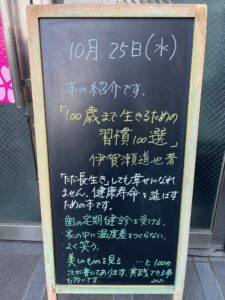 10月 25日(水)
本の紹介です。
「100歳まで生きるための
習慣100選」
伊賀瀬道也著
「ただ長生き」しても幸せになれ
ません。健康寿命を延ばす
ための本です。
・国の定期健診を受ける、
・家の中に温度差をつくらない、
・よく笑う、
・美しいものを見る ・・・と100の
ことが書いてあります。実践できる事
も多いです。